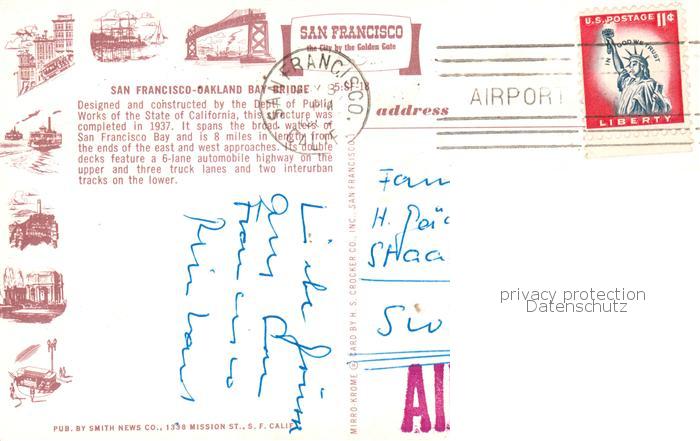 SAN FRANCISCO
the City by the Golden Gate
U.S. POSTAGE 11¢
IN GOD WE TRUST
LIBERTY
SAN FRANCISCO
AIRPORT
SAN FRANCISCO-OAKLAND BAY BRIDGE
Designed and constructed by the Dept. of Public
Works of the State of California, this structure was
completed in 1937. It spans the broad waters of
San Francisco Bay and is 8 miles in length from
the ends of the east and west approaches. Its double
decks feature a 6-lane automobile highway on the
upper and three truck lanes and two interurban
tracks on the lower.
address
Liebe Grüsse
aus San
Francisco
Fam
H.
Staa
AI
MIRRO-KROME ® CARD BY H. S. CROCKER CO., INC. SAN FRANCISCO
PUB. BY SMITH NEWS CO., 1338 MISSION ST., S. F. CALIF
privacy protection
Datenschutz